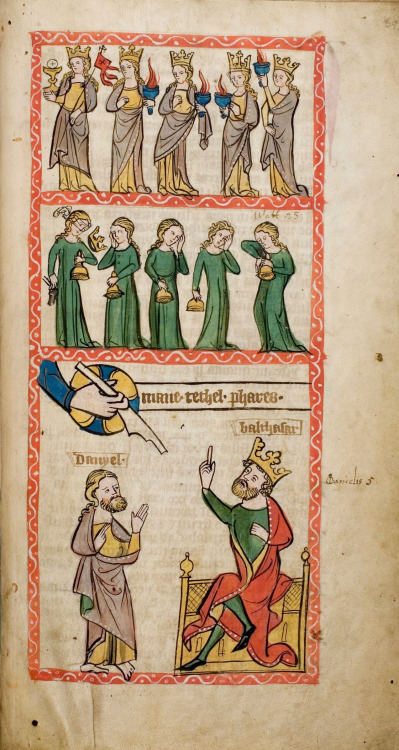 Matt 25
mane · techel · phares ·
balthasar
Danyel ·
Danielis 5.